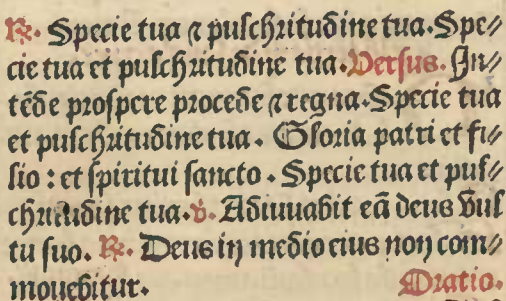 ℟. Specie tua ⁊ pulchritudine tua. Spe⸗
cie tua et pulchritudine tua. Versus. In⸗
tẽde prospere procede ⁊ regna. Specie tua
et pulchritudine tua. Gloria patri et fi⸗
lio : et spiritui sancto. Specie tua et pul⸗
chritudine tua. ℣. Adiuuabit eã deus vul
tu suo. ℟. Deus in medio eius non com⸗
mouebitur. Oratio.